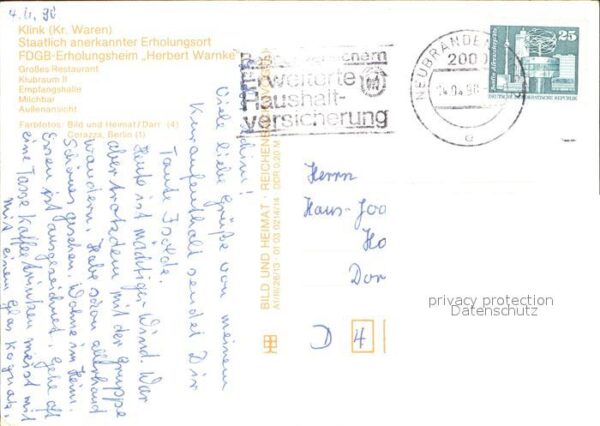 4.4.90
Klink (Kr. Waren)
Staatlich anerkannter Erholungsort
FDGB-Erholungsheim „Herbert Warnke"
Großes Restaurant
Klubraum II
Empfangshalle
Milchbar
Außenansicht
Farbfotos: Bild und Heimat / Darr (4)
Corazza, Berlin (1)
Viele liebe Grüße von meinem
Kuraufenthalt sendet Dir
Tante Isolde.
Heute ist mächtiger Wind. War
aber trotzdem mit der Gruppe
wandern. Habe schon allerhand
Schönes gesehen. Wohne im Heim.
Essen ist ausgezeichnet. Gehe oft
eine Tasse Kaffee trinken meist mit
mit einem Glas Kognak.
BILD UND HEIMAT · REICHENB
A1/III/26/13 01 03 0214/14 DDR 0,20 M
sichern
Erweiterte
Haushalt-
versicherung
NEUBRANDEN
2000
04.90
e
25
DEUTSCHE DEMOKRATISCHE REPUBLIK
Herrn
Hans-Joo
Ho
Dor
D 4
privacy protection
Datenschutz